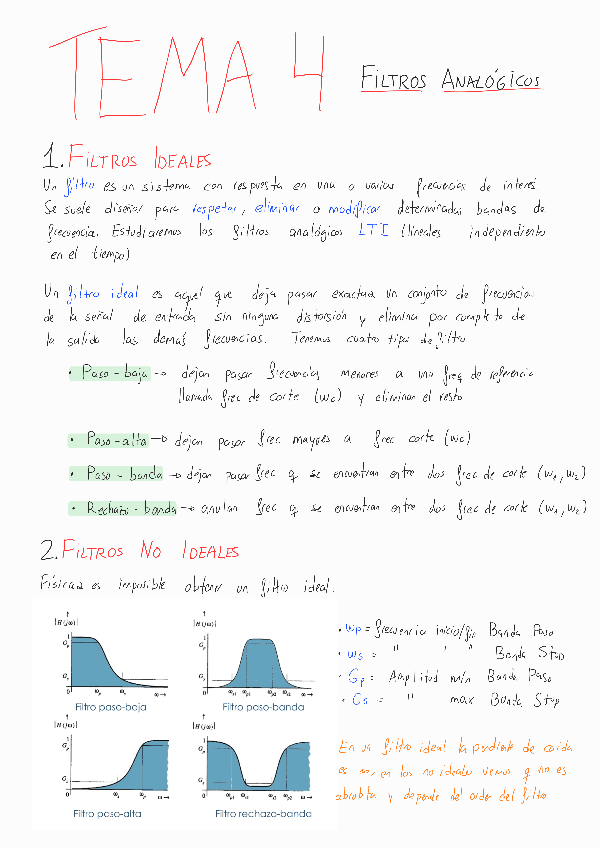 TEMA 4 FILTROS ANALÓGICOS
1. FILTROS IDEALES
Un filtro es un sistema con respuesta en una o varias frecuencias de interés
Se suele diseñar para respetar, eliminar o modificar determinadas bandas de
frecuencia. Estudiaremos los filtros analógicos LTI (lineales independiente
en el tiempo)
Un filtro ideal es aquel que deja pasar exactam un conjunto de frecuencias
de la señal de entrada sin ninguna distorsión y elimina por completo de
la salida las demás frecuencias. Tenemos cuatro tipos de filtro
• Paso-baja → dejan pasar frecuencias menores a una freq de referencia
llamada frec de corte (wc) y eliminan el resto
• Paso-alta → dejan pasar frec mayores a frec corte (wc)
• Paso-banda → dejan pasar frec q se encuentran entre dos frec de corte (w1, w2)
• Rechazo-banda → anulan frec q se encuentran entre dos frec de corte (w1, w2)
2. FILTROS NO IDEALES
Física es imposible obtener un filtro ideal.
|H(jω)|
1
Gp
Gs
0 ωp ωs ω→
Filtro paso-baja
|H(jω)|
1
Gp
Gs
0 ωs1 ωp1 ωp2 ωs2 ω→
Filtro paso-banda
|H(jω)|
1
Gp
Gs
0 ωs ωp ω→
Filtro paso-alta
|H(jω)|
1
Gp
Gs
0 ωp1 ωs1 ωs2 ωp2 ω→
Filtro rechaza-banda
• wp = frecuencia inicio/fin Banda Paso
• ws = " " " Banda Stop
• Gp = Amplitud min Banda Paso
• Gs = " max Banda Stop
En un filtro ideal la pendiente de caida
es ∞, en los no ideales vemos q no es
abrubta y depende del orden del filtro